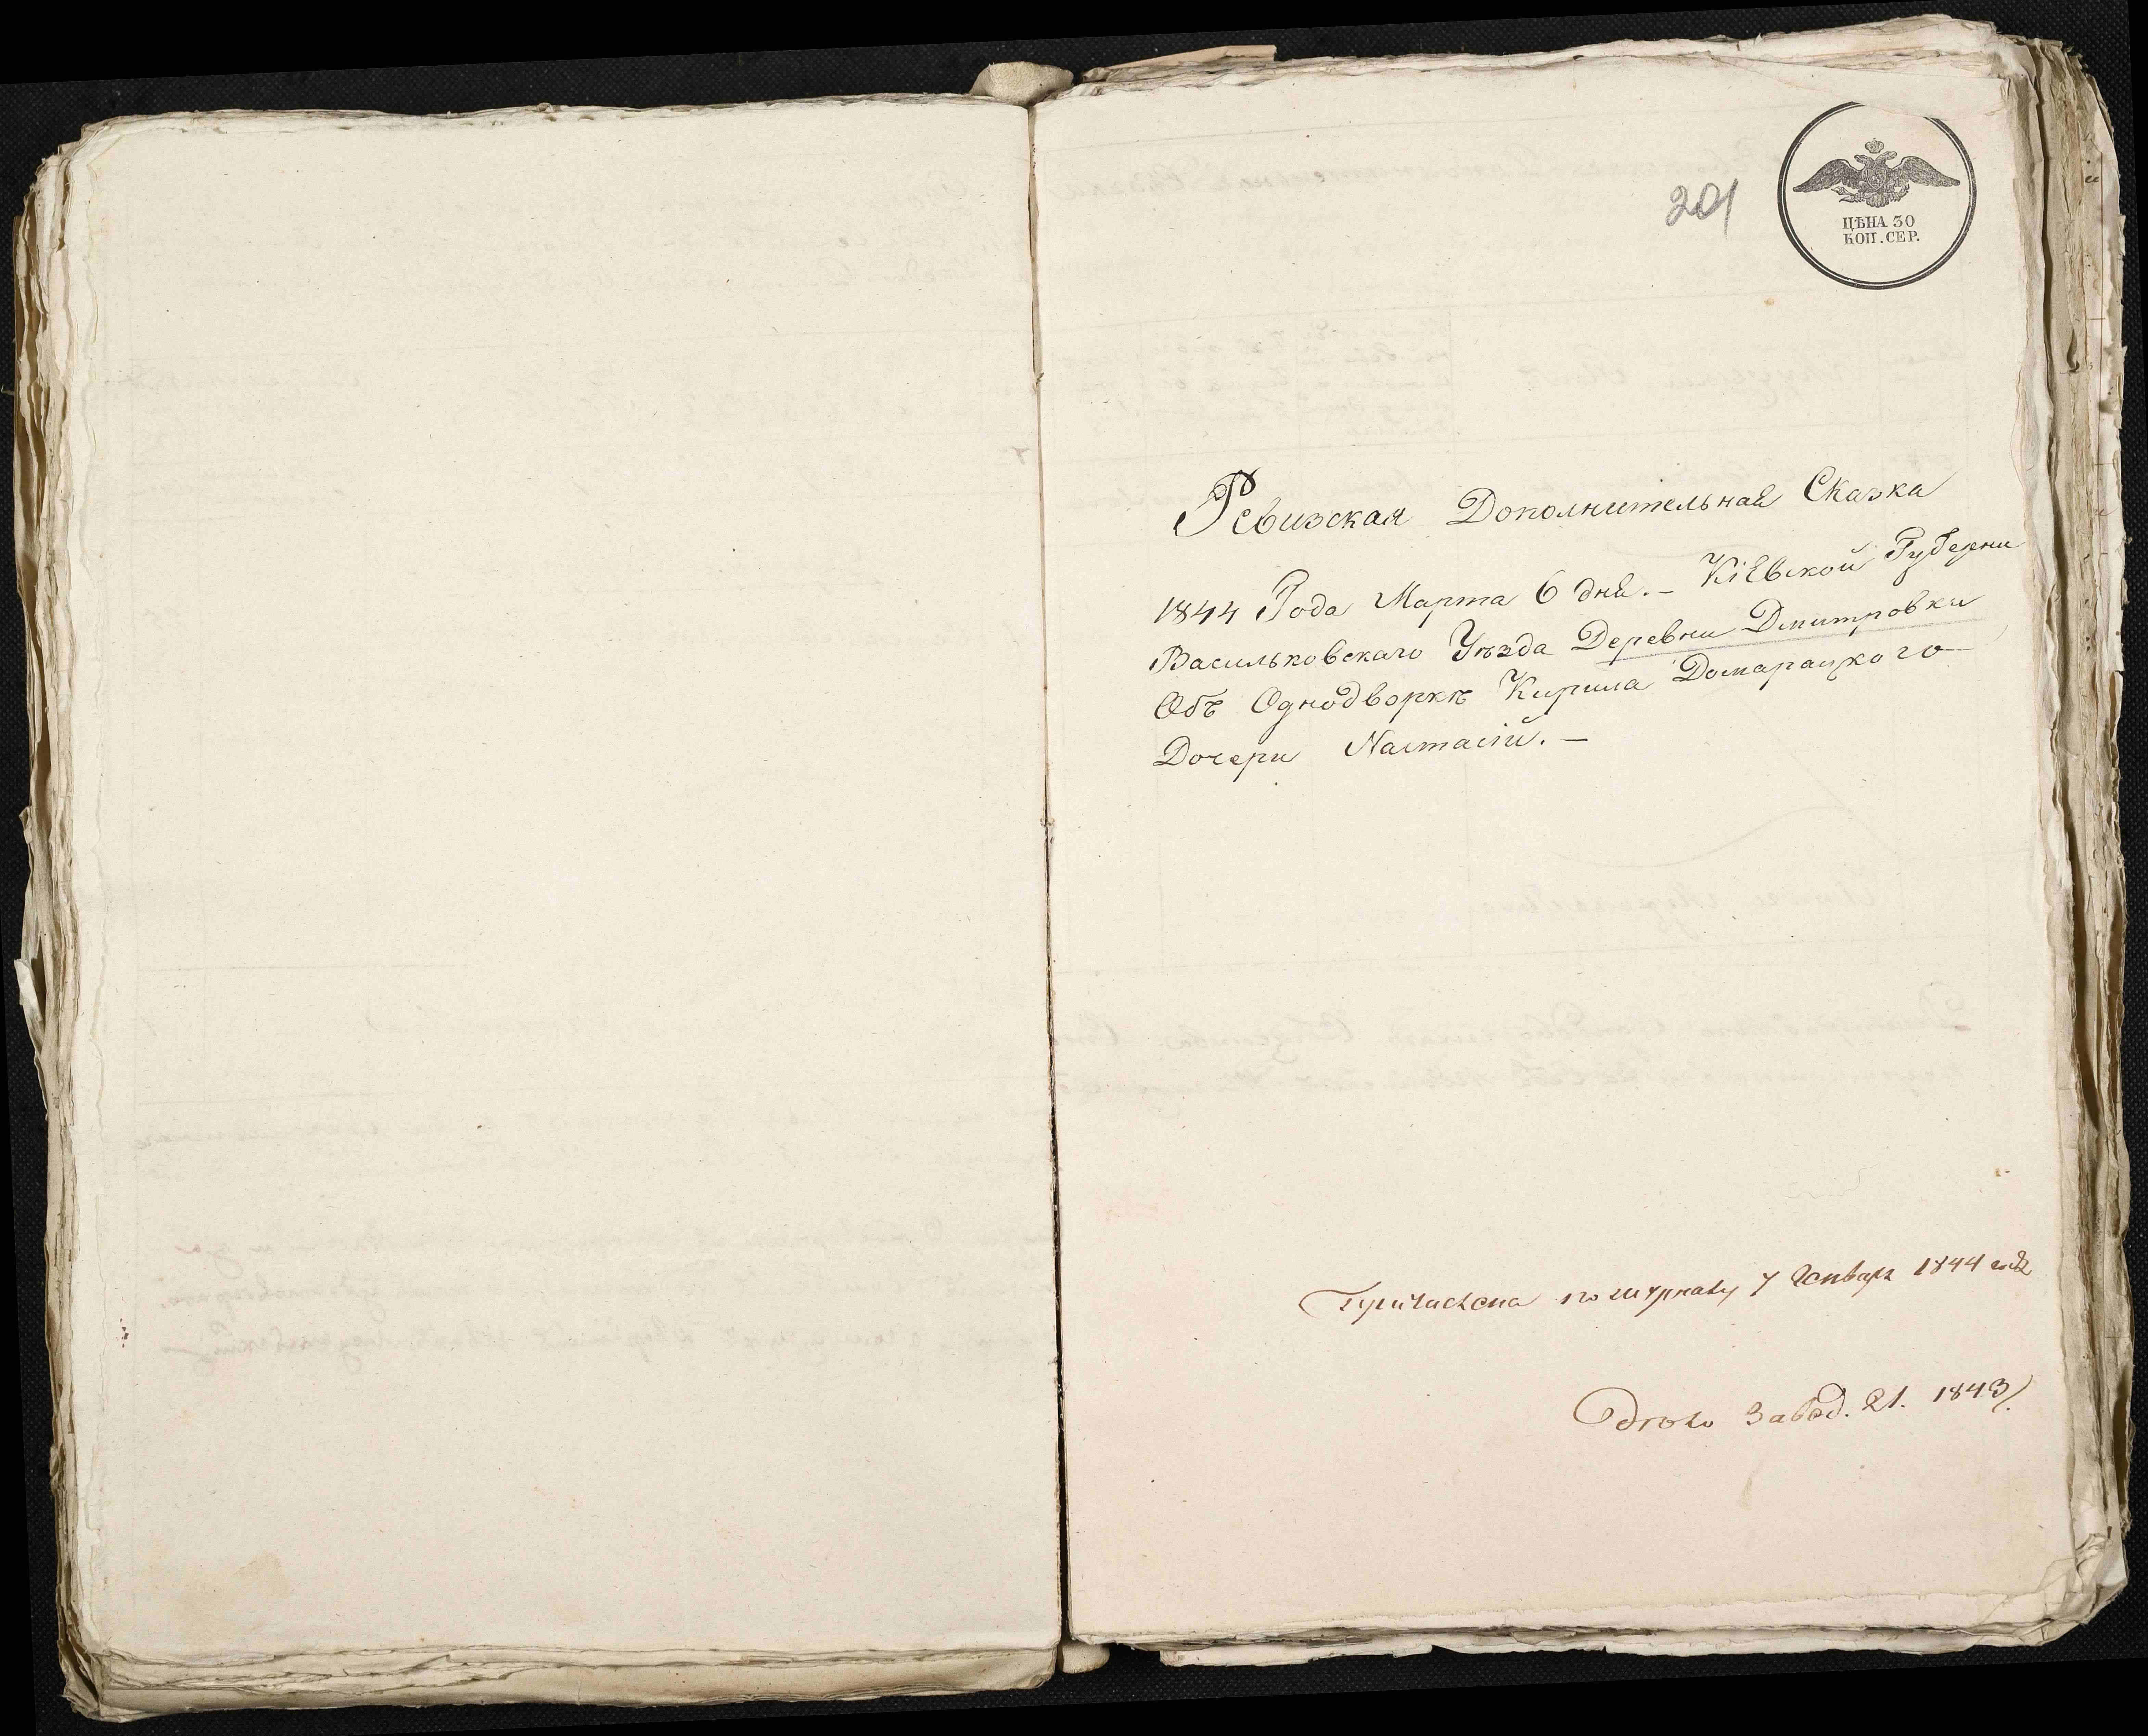 201
ЦѢНА 30
КОП. СЕР.
Ревизская Дополнительная Сказка
1844 Года Марта 6 дня. — Кіевской Губерни
Васильковскаго Уѣзда Деревни Дмитровки
Объ Однодворкѣ Кирила Домарацкого
Дочери Настасіи. —
Причислена по журналу 7 Генваря 1844 года
Дѣло Завод. 21. 1843